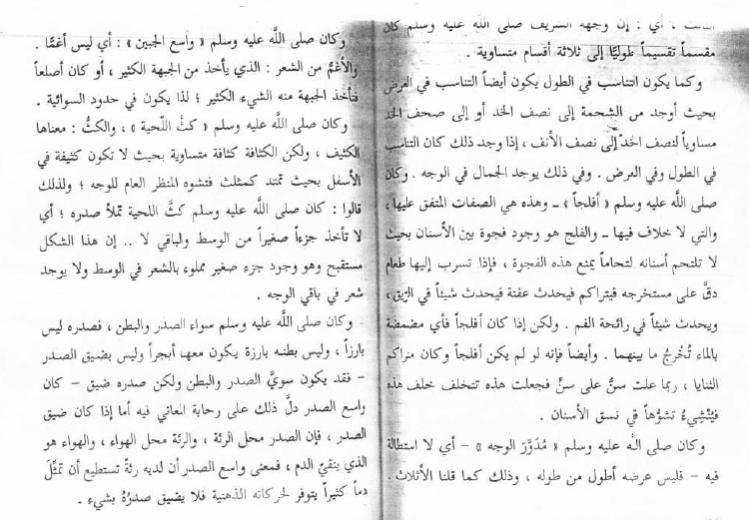 الثالث ، أي : إن وجهه الشريف صلى الله عليه وسلم كان
مقسماً تقسيماً طوليًا إلى ثلاثة أقسام متساوية .
وكما يكون التناسب في الطول يكون أيضاً التناسب في العرض
بحيث أوجد من الشحمة إلى نصف الخد أو إلى صحف الخد
مساوياً لنصف الخد إلى نصف الأنف ، إذا وجد ذلك كان التناسب
في الطول وفي العرض . وفي ذلك يوجد الجمال في الوجه . وكان
صلى الله عليه وسلم « أفلجاً » ــ وهذه هي الصفات المتفق عليها ،
والتي لا خلاف فيها ــ والفلج هو وجود فجوة بين الأسنان بحيث
لا تلتحم أسنانه لتحاماً يمنع هذه الفجوة ، فإذا تسرب إليها طعام
دقَّ على مستخرجه فيتراكم فيحدث عفنة فيحدث شيئاً في الرّيق ،
ويحدث شيئاً في رائحة الفم . ولكن إذا كان أفلجاً فأي مضمضة
بالماء تُخرجُ ما بينهما . وأيضاً فإنه لو لم يكن أفلجاً وكان متراكم
الثنايا ، ربما علت سنٌّ على سنٍّ فجعلت هذه تتخلف خلف هذه
فيُنْشِيءُ تشوُّهاً في نسق الأسنان .
وكان صلى الله عليه وسلم « مُدَوَّرَ الوجه » – أي لا استطالة
فيه – فليس عرضه أطول من طوله ، وذلك كما قلنا الأثلاث .
وكان صلى اللَّه عليه وسلم « واسع الجبين » : أي ليس أغمًّا .
والأغمُّ من الشعر : الذي يأخذ من الجبهة الكثير ، أو كان أصلعاً
فتأخذ الجبهة منه الشيء الكثير ؛ لذا يكون في حدود السوائية .
وكان صلى اللَّه عليه وسلم « كثَّ اللحية » ، والكثُّ : معناها
الكثيف ، ولكن الكثافة كثافة متساوية بحيث لا تكون كثيفة في
الأسفل بحيث تمتد كمثلث فتشوه المنظر العام للوجه ؛ ولذلك
قالوا : كان صلى اللَّه عليه وسلم كثَّ اللحية تملأ صدره ؛ أي
لا تأخذ جزءاً صغيراً من الوسط والباقي لا .. إن هذا الشكل
مستقبح وهو وجود جزء صغير مملوء بالشعر في الوسط ولا يوجد
شعر في باقي الوجه .
وكان صلى اللَّه عليه وسلم سواء الصدر والبطن ، فصدره ليس
بارزاً ، وليس بطنه بارزة يكون معها أبجراً وليس بضيق الصدر
– فقد يكون سويَّ الصدر والبطن ولكن صدره ضيق – كان
واسع الصدر دلَّ ذلك على رحابة المعاني فيه أما إذا كان ضيق
الصدر ، فإن الصدر محل الرئة ، والرئة محل الهواء ، والهواء هو
الذي ينقيّ الدم ، فمعنى واسع الصدر أن لديه رئةً تستطيع أن تمثّلَ
دماً كثيراً يتوفر لحركاته الذهنية فلا يضيق صدرُهُ بشيء .